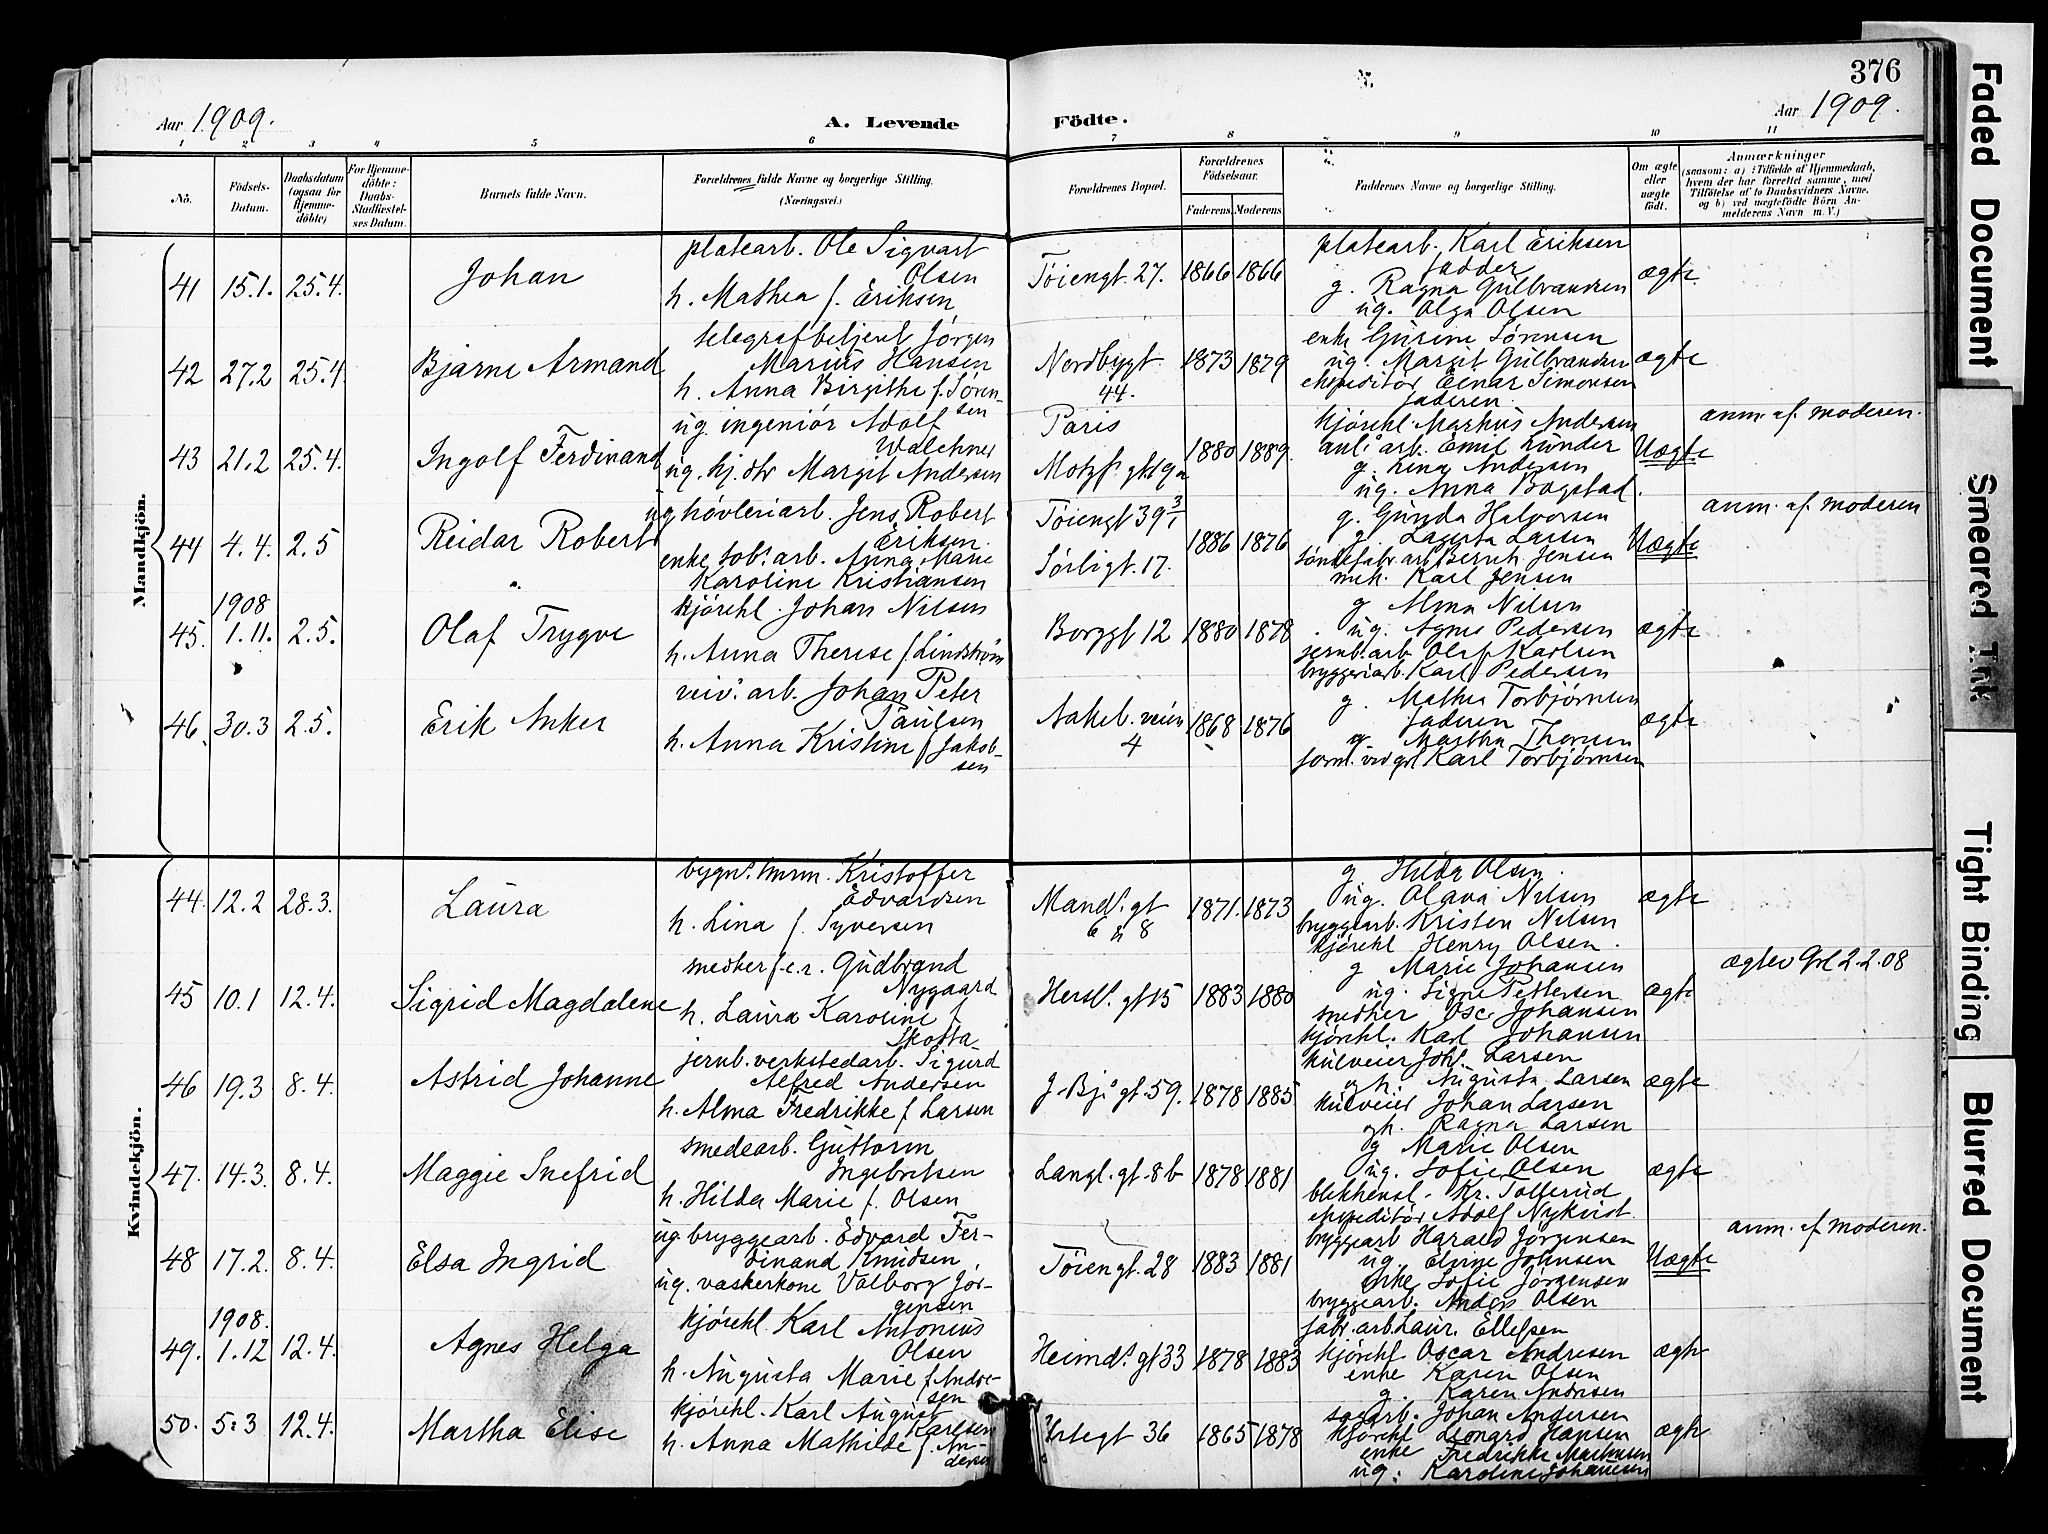 376
Aar 1909.
A. Levende Födte.
Aar 1909.
1 2 3 4 5 6 7 8 9 10 11
No.
Födsels-Datum.
Daabsdatum (ogsaa for Hjemme-döbte)
For Hjemme-döbte: Daabs-Stadfæstel-ses Datum.
Barnets fulde Navn.
Forældrenes fulde Navne og borgerlige Stilling.
(Næringsvei.)
Forældrenes Bopæl.
Forældrenes Födselsaar.
Faderens. Moderens.
Faddernes Navne og borgerlige Stilling.
Om ægte eller uægte födt.
Anmærkninger
(saasom: a) i Tilfælde af Hjemmedaab,
hvem der har forrettet samme, med
Tilföielse af to Daabsvidners Navne.
og b) ved uægtefödte Börn An-
melderens Navn m. V.)
Mandkjön.
41 15.1. 25.4. Johan
platearb. Ole Sigvart
Olsen
h. Mathea f. Eriksen
Tøiengt. 27. 1866 1866
platearb. Karl Eriksen
fadder
g. Ragna Gulbrandsen
ug. Olga Olsen
ægte
42 27.2 25.4. Bjarne Armand
telegrafbetjent Jørgen
Marius Hansen
h. Anna Birgithe f. Søren-
sen
Nordbygt
44.
1873 1879
enke Gurine Sørensen
ug. Margit Gulbrandsen
expeditör Einar Simonsen
faderen
ægte
43 21.2 25.4. Ingolf Ferdinand
ug. ingeniör Adolf
Walchner
ug. hj. dtr Margit Andersen
Paris
Motzf. gt 19a
1880 1889.
kjørekl Markus Andersen
anl. arb. Emil Lunder
g. Lina Andersen
ug. Anna Bogstad.
Uægte
anm. af moderen.
44 4.4. 2.5 Reidar Robert
ug høvleriarb. Jens Robert
Eriksen.
enke tob. arb. Anna Marie
Karoline Kristiansen
Tøiengt 39 3/1
Sørligt. 17.
1886 1876
g. Gunda Halvorsen
g. Lagerta Larsen
tøndefabr arb Bernh Jensen
mek. Karl Jensen
Uægte
anm. af moderen
1908
45. 1.11. 2.5. Olaf Trygve
kjørekl. Johan Nilsen
h. Anna Therese f. Lindstrøm
Borggt 12 1880 1878
g Alma Nilsen
ug. Agnes Pedersen
jernb. arb Olaf Karlsen
bryggeriarb. Karl Pedersen
ægte
46. 30.3 2.5. Erik Anker
veiv. arb. Johan Peter
Paulsen
h. Anna Kristine f. Jakob-
sen
Aakeb. veien
4
1868 1876
g. Mathea Torbjørnsen
faderen
g Martha Thoresen
form. ved grl Karl Torbjørnsen
ægte
Kvindekjön.
44. 12.2 28.3. Laura
bygn. Kristoffer
Edvardsen
h. Lina f. Syversen
Mand. gt
6 & 8
1871. 1873
g Hilda Olsen.
ug. Olava Nilsen
bryggearb. Kristen Nilsen
kjørekl Henry Olsen.
ægte
45 10.1 12.4. Sigrid Magdalene
snedker f.c.r. Gudbrand
Nygaard
h. Laura Karoline f
Skotta
Hersl. gt 15 1883 1880
g Marie Johansen
ug. Signe Pettersen
snedker Osc. Johansen
kjørekl. Karl Johansen
ægte
ægtev Grl 2.2.08
46 19.3 8.4. Astrid Johanne
jernb. verkstedarb. Sigurd
Alfred Andersen
h. Alma Fredrikke f Larsen
J. Bj. gt. 59. 1878 1885
kulveier Joh. Larsen
g h. Augusta Larsen
kulveier Johan Larsen
gh. Ragna Larsen
ægte
47. 14.3. 8.4. Maggie Snefrid
smedearb. Guttorm
Ingebretsen
h. Hilda Marie f. Olsen
Langl. gt. 8b 1878 1881
g Marie Olsen
ug. Sofie Olsen
blikkensl. Kr. Tollerud
expeditör Adolf Nykvist.
ægte
48 17.2. 8.4. Elsa Ingrid
ug. bryggearb. Edvard Fer-
dinand Knudsen
ug. vaskerkone Valborg Jør-
gensen
Tøiengt. 28 1883 1881
bryggearb Harald Jørgensen
ug. Elvine Johnsen
enke Sofie Jørgensen
bryggearb. Anders Olsen
Uægte
anm. af moderen.
1908.
49. 1.12 12.4. Agnes Helga
kjørekl. Karl Antonius
Olsen
h. Augusta Marie f Andre-
sen
Heimd. gt 33 1878 1883
fabr. arb. Laur. Ellefsen
kjørekl Oscar Andresen
enke Karen Olsen
g. Karen Andresen
ægte
50. 5.3 12.4. Martha Elise
kjørekl. Karl August
Karlsen
h. Anna Mathilde f. An-
dersen
Urtegt 36 1865 1878
sagarb. Johan Andersen
kjørekl Leonard Hansen
enke Fredrikke Markussen
ug. Karoline Johannesen
ægte
Faded Document
Smeared Ink
Tight Binding
Blurred Document